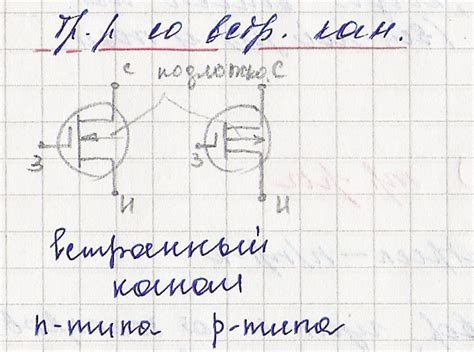 Тр-р со встр. кан.
с подложка С
З З
И И
встроенный
канал
n-типа p-типа